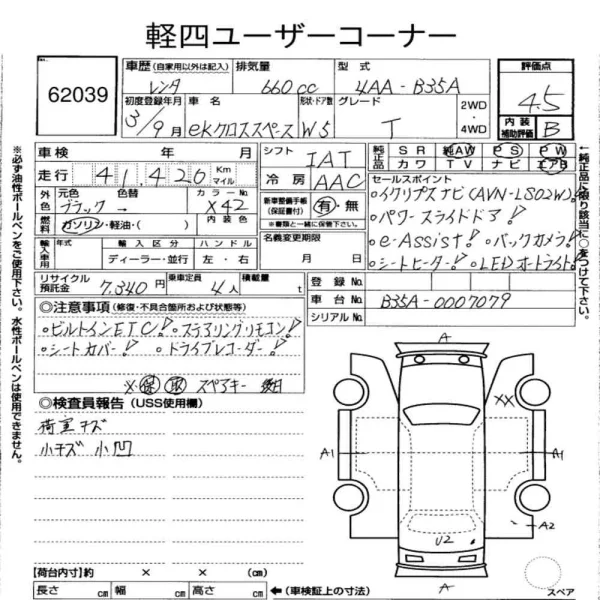 軽四ユーザーコーナー
62039
車歴 (自家用以外は記入) 排気量 型式 評価点
レンタ 660cc 4AA-B35A 4.5
初度登録年月 車名 形状・ドア数 グレード 2WD・4WD 内装補助評価 B
3/9月 eKクロススペース W5 T
車検 年 月 シフト IAT 純正品 SR 純AW PS PW
カワ TV ナビ エアB
走行 41,420 Km マイル 冷房 AAC セールスポイント
外色 元色 色替 カラーNo. 新車整備手帳(保証書付) 有・無
ブラック → X42 ※書類と一緒に保管して下さい。
燃料 ガソリン・軽油・( ) 内装色 名義変更期限
輸入車用 年式 輸入区分 ハンドル 月 日
ディーラー・並行 左・右
◦イクリプスナビ(AVN-LS02W)!
◦パワースライドドア!
◦e-Assist! ◦バックカメラ!
◦シートヒーター! ◦LEDオートライト!
リサイクル預託金 7,340円 乗車定員 4人 積載量 t
登録No.
車台No. B35A-0007079
シリアルNo.
◎注意事項 (修復・不具合箇所および状態等)
◦ビルトインETC! ◦ステアリングリモコン!
◦シートカバー! ◦ドライブレコーダー!
※ 保 取 スペアキー 後日
◎検査員報告 (USS使用欄)
荷室キズ
小キズ 小凹
A
XX
A1 A1
A2
U2
A
スペア
【荷台内寸】約 × × (cm)
長さ cm 幅 cm 高さ cm ←(車検証上の寸法)
※必ず油性ボールペンをご使用下さい。水性ボールペンは使用できません。
←純正品に限り該当に○をつけて下さい。